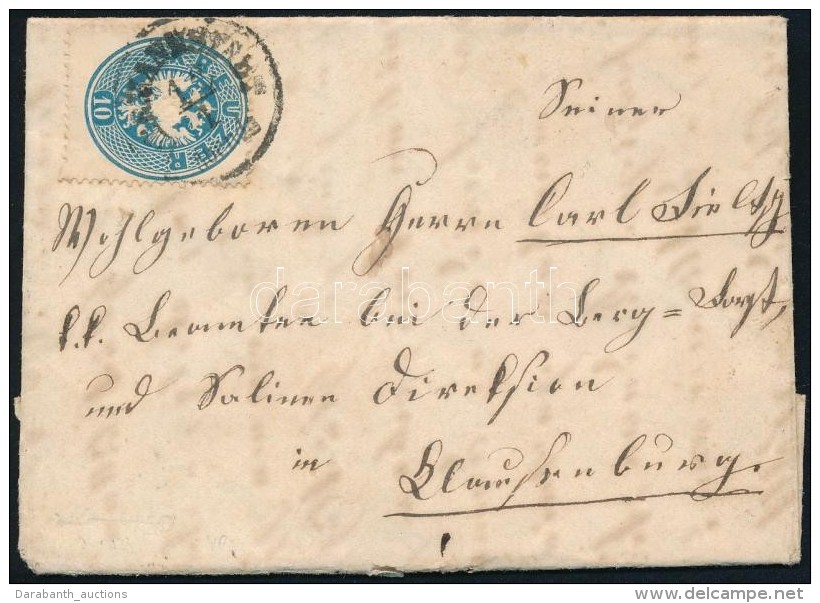 10 KREUZER
Seiner
Wohlgeboren Herrn Carl Fieltsch
k.k. Beamten bei der Berg= Forst,
und Salinen Direktion
in
Clausenburg.
darabanth
Darabanth_auctions
www.delcampe.net